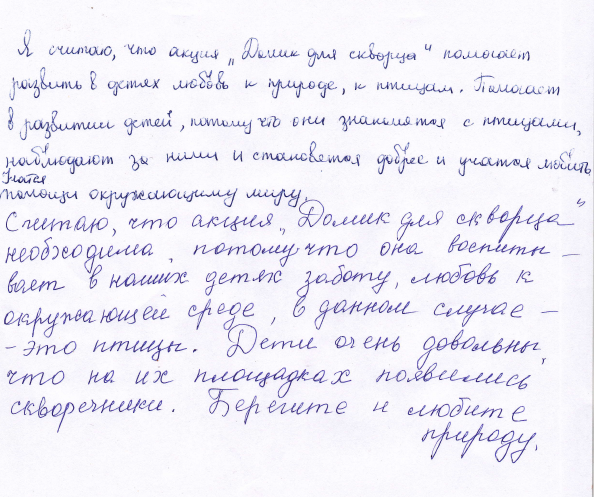 Я считаю, что акция „Домик для скворца“ помогает
развить в детях любовь к природе, к птицам. Помогает
в развитии детей, потому что они знакомятся с птицами,
наблюдают за ними и становятся добрее и учатся любить
Учатся
помощи окружающему миру.
Считаю, что акция „Домик для скворца“
необходима, потому что она воспиты –
вает в наших детях заботу, любовь к
окружающей среде, в данном случае –
- это птицы. Дети очень довольны,
что на их площадках появились
скворечники. Берегите и любите
природу.